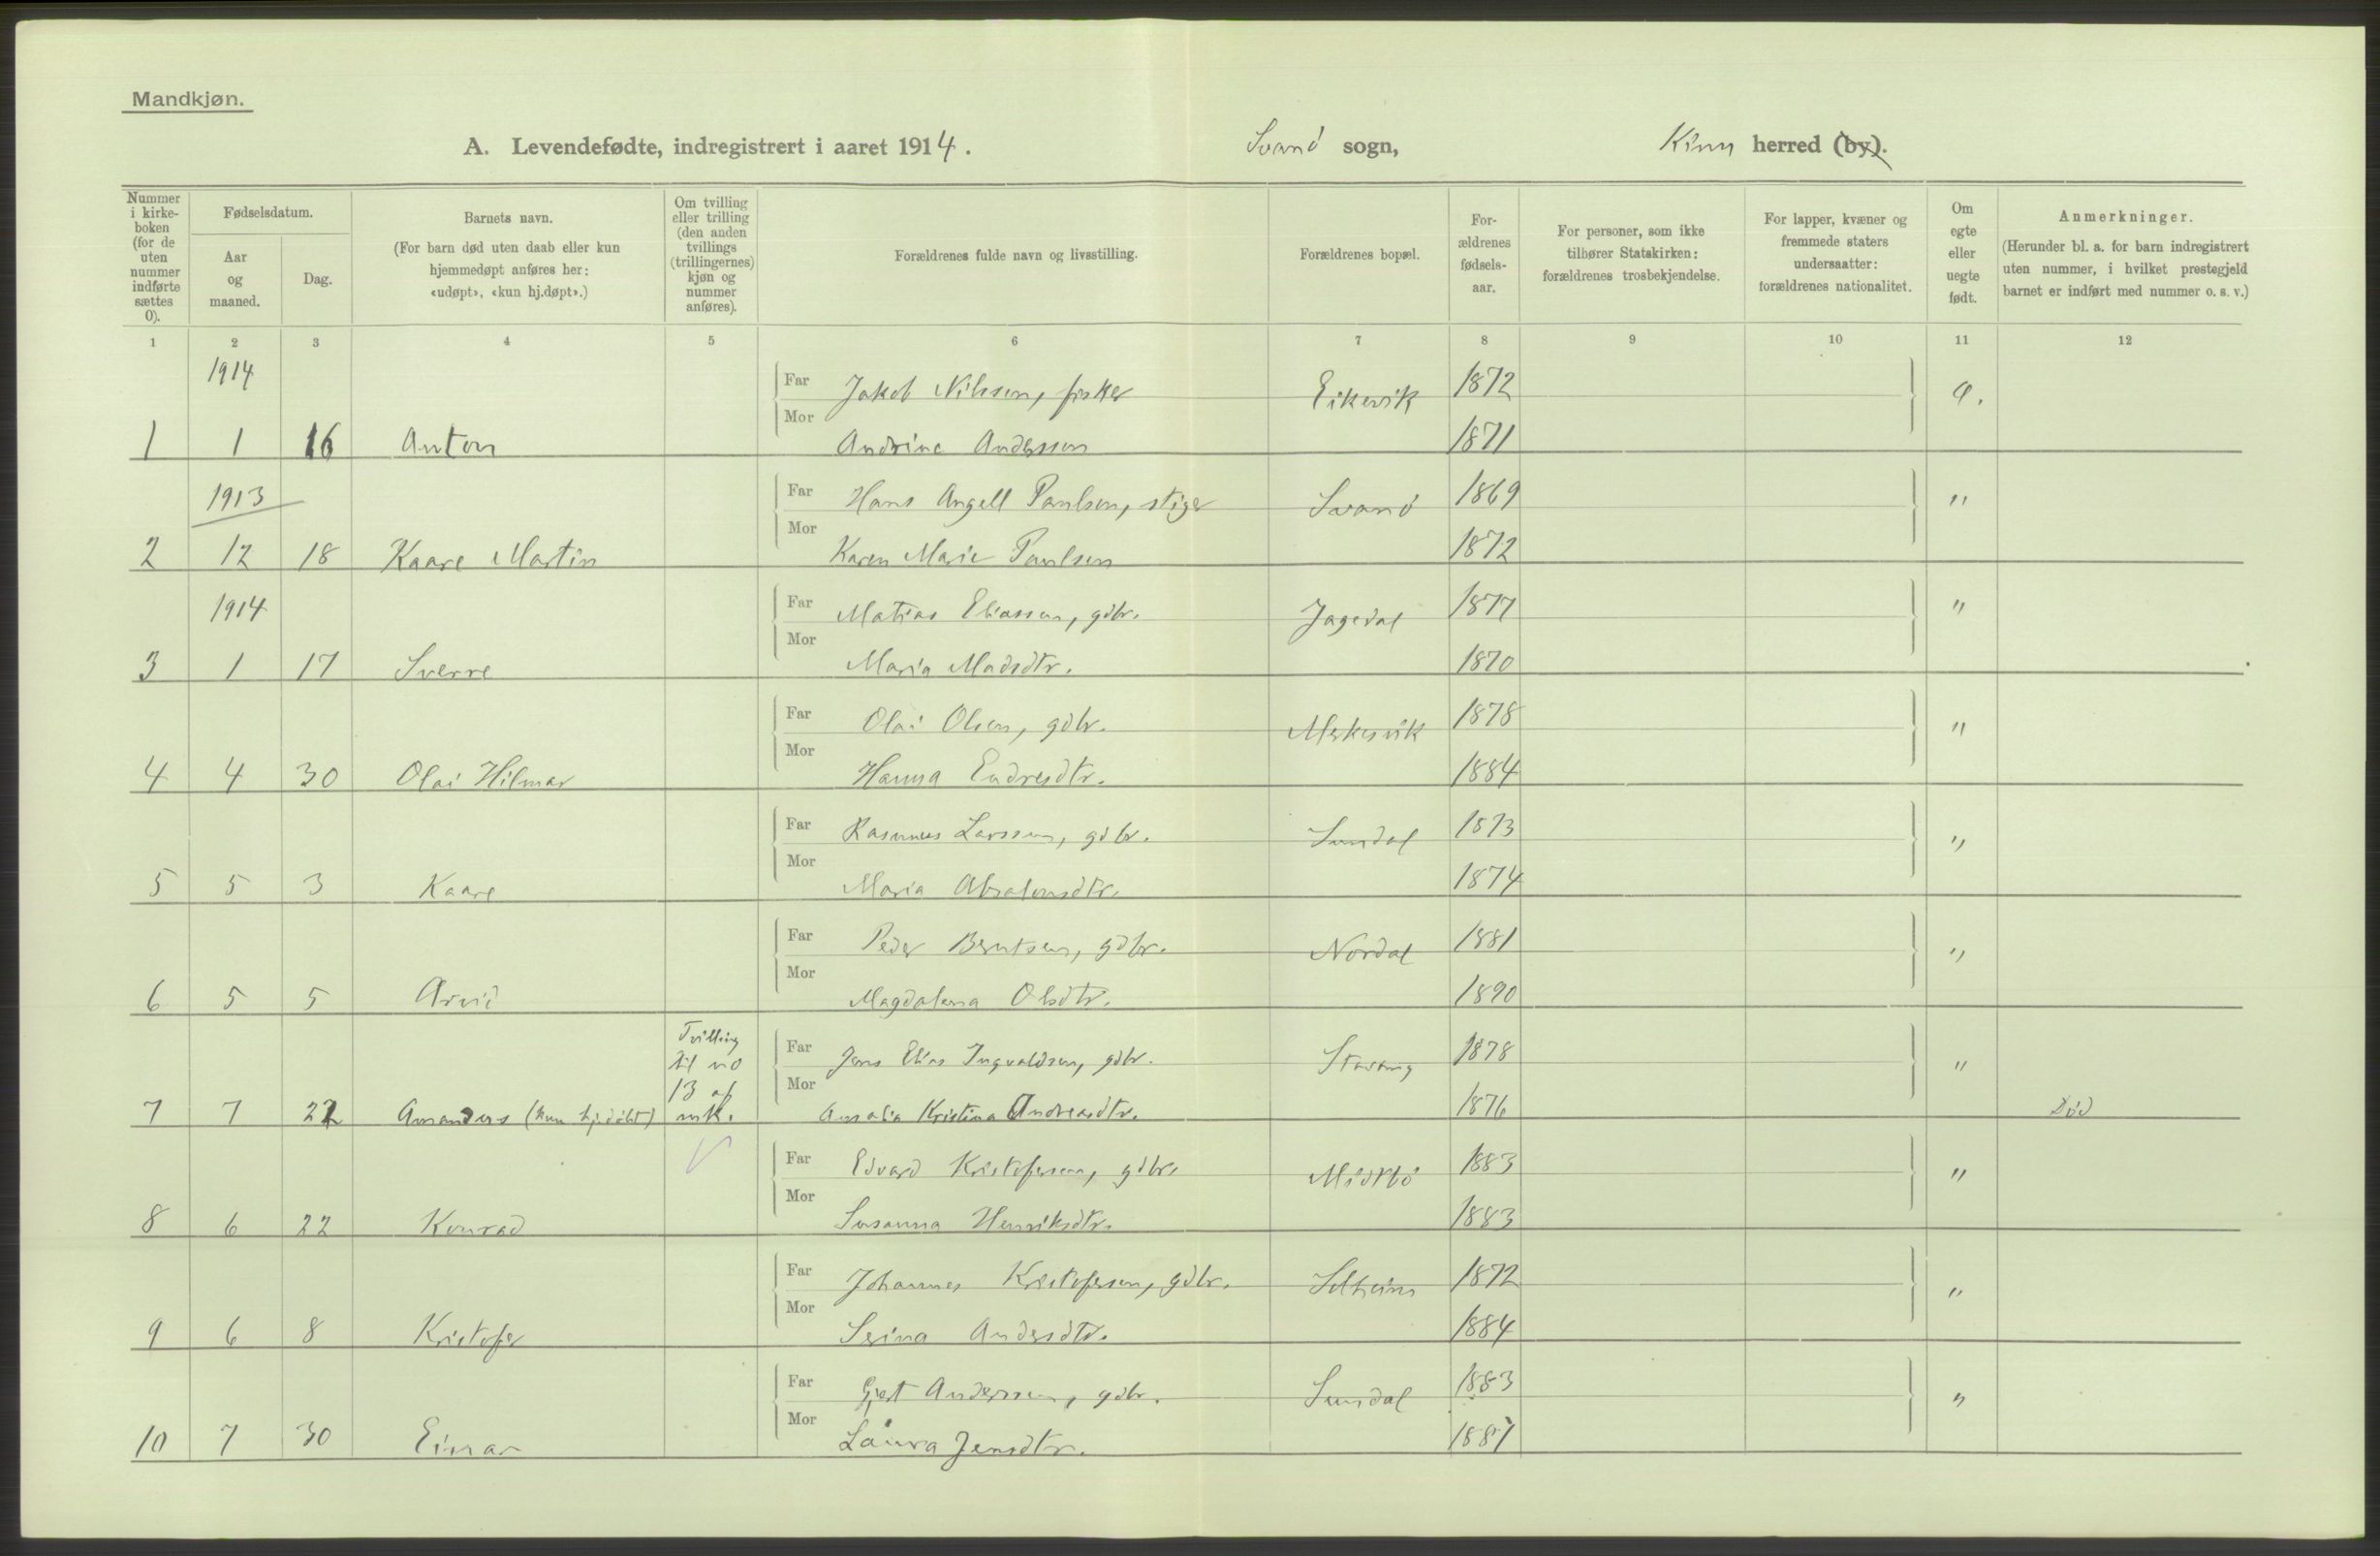 Mandkjøn.
A. Levendefødte, indregistrert i aaret 1914. Svanö sogn, Kinn herred (by).
Nummer i kirke-boken (for de uten nummer indførte sættes 0).
Fødselsdatum.
Aar og maaned.
Dag.
Barnets navn.
(For barn død uten daab eller kun hjemmedøpt anføres her: «udøpt», «kun hj.døpt».)
Om tvilling eller trilling (den anden tvillings (trillingernes) kjøn og nummer anføres).
Forældrenes fulde navn og livsstilling.
Forældrenes bopæl.
For-ældrenes fødsels-aar.
For personer, som ikke tilhører Statskirken: forældrenes trosbekjendelse.
For lapper, kvæner og fremmede staters undersaatter: forældrenes nationalitet.
Om egte eller uegte født.
Anmerkninger.
(Herunder bl. a. for barn indregistrert uten nummer, i hvilket prestegjeld barnet er indført med nummer o. s. v.)
1 2 3 4 5 6 7 8 9 10 11 12
1914 Far Jakob Nilssen, fisker Eikevik 1872 e.
1 1 16 Anton Mor Andrine Anderssen 1871
1913 Far Hans Angell Paulsen, stiger Svanö 1869 "
2 12 18 Kaare Martin Mor Karen Marie Paulsen 1872
1914 Far Matias Eliassen, gdbr. Jagedal 1877 "
3 1 17 Sverre Mor Maria Madsdtr. 1870
Far Olai Olsen, gdbr. Merkesvik 1878 "
4 4 30 Olai Hilmar Mor Hanna Endresdtr. 1884
Far Rasmus Larssen, gdbr. Sundal 1873 "
5 5 3 Kaare Mor Maria Absalonsdtr. 1874
Far Peder Berntsen, gdbr. Nordal 1881 "
6 5 5 Arvid Mor Magdalena Olsdtr. 1890
Tvilling til no 13 af mk.
Far Jens Elias Ingvaldsen, gdbr. Stavang 1878 "
7 7 22 Amandus (kun hj.döbt) Mor Amalia Kristina Andreasdtr. 1876 Död
Far Edvard Kristofersen, gdbr. Midtbö 1883 "
8 6 22 Konrad Mor Susanna Henriksdtr. 1883
Far Johannes Kristofersen, gdbr. Solheim 1872 "
9 6 8 Kristofer Mor Serina Andersdtr. 1884
Far Gjert Anderssen, gdbr. Sundal 1883 "
10 7 30 Einar Mor Laura Jensdtr. 1887